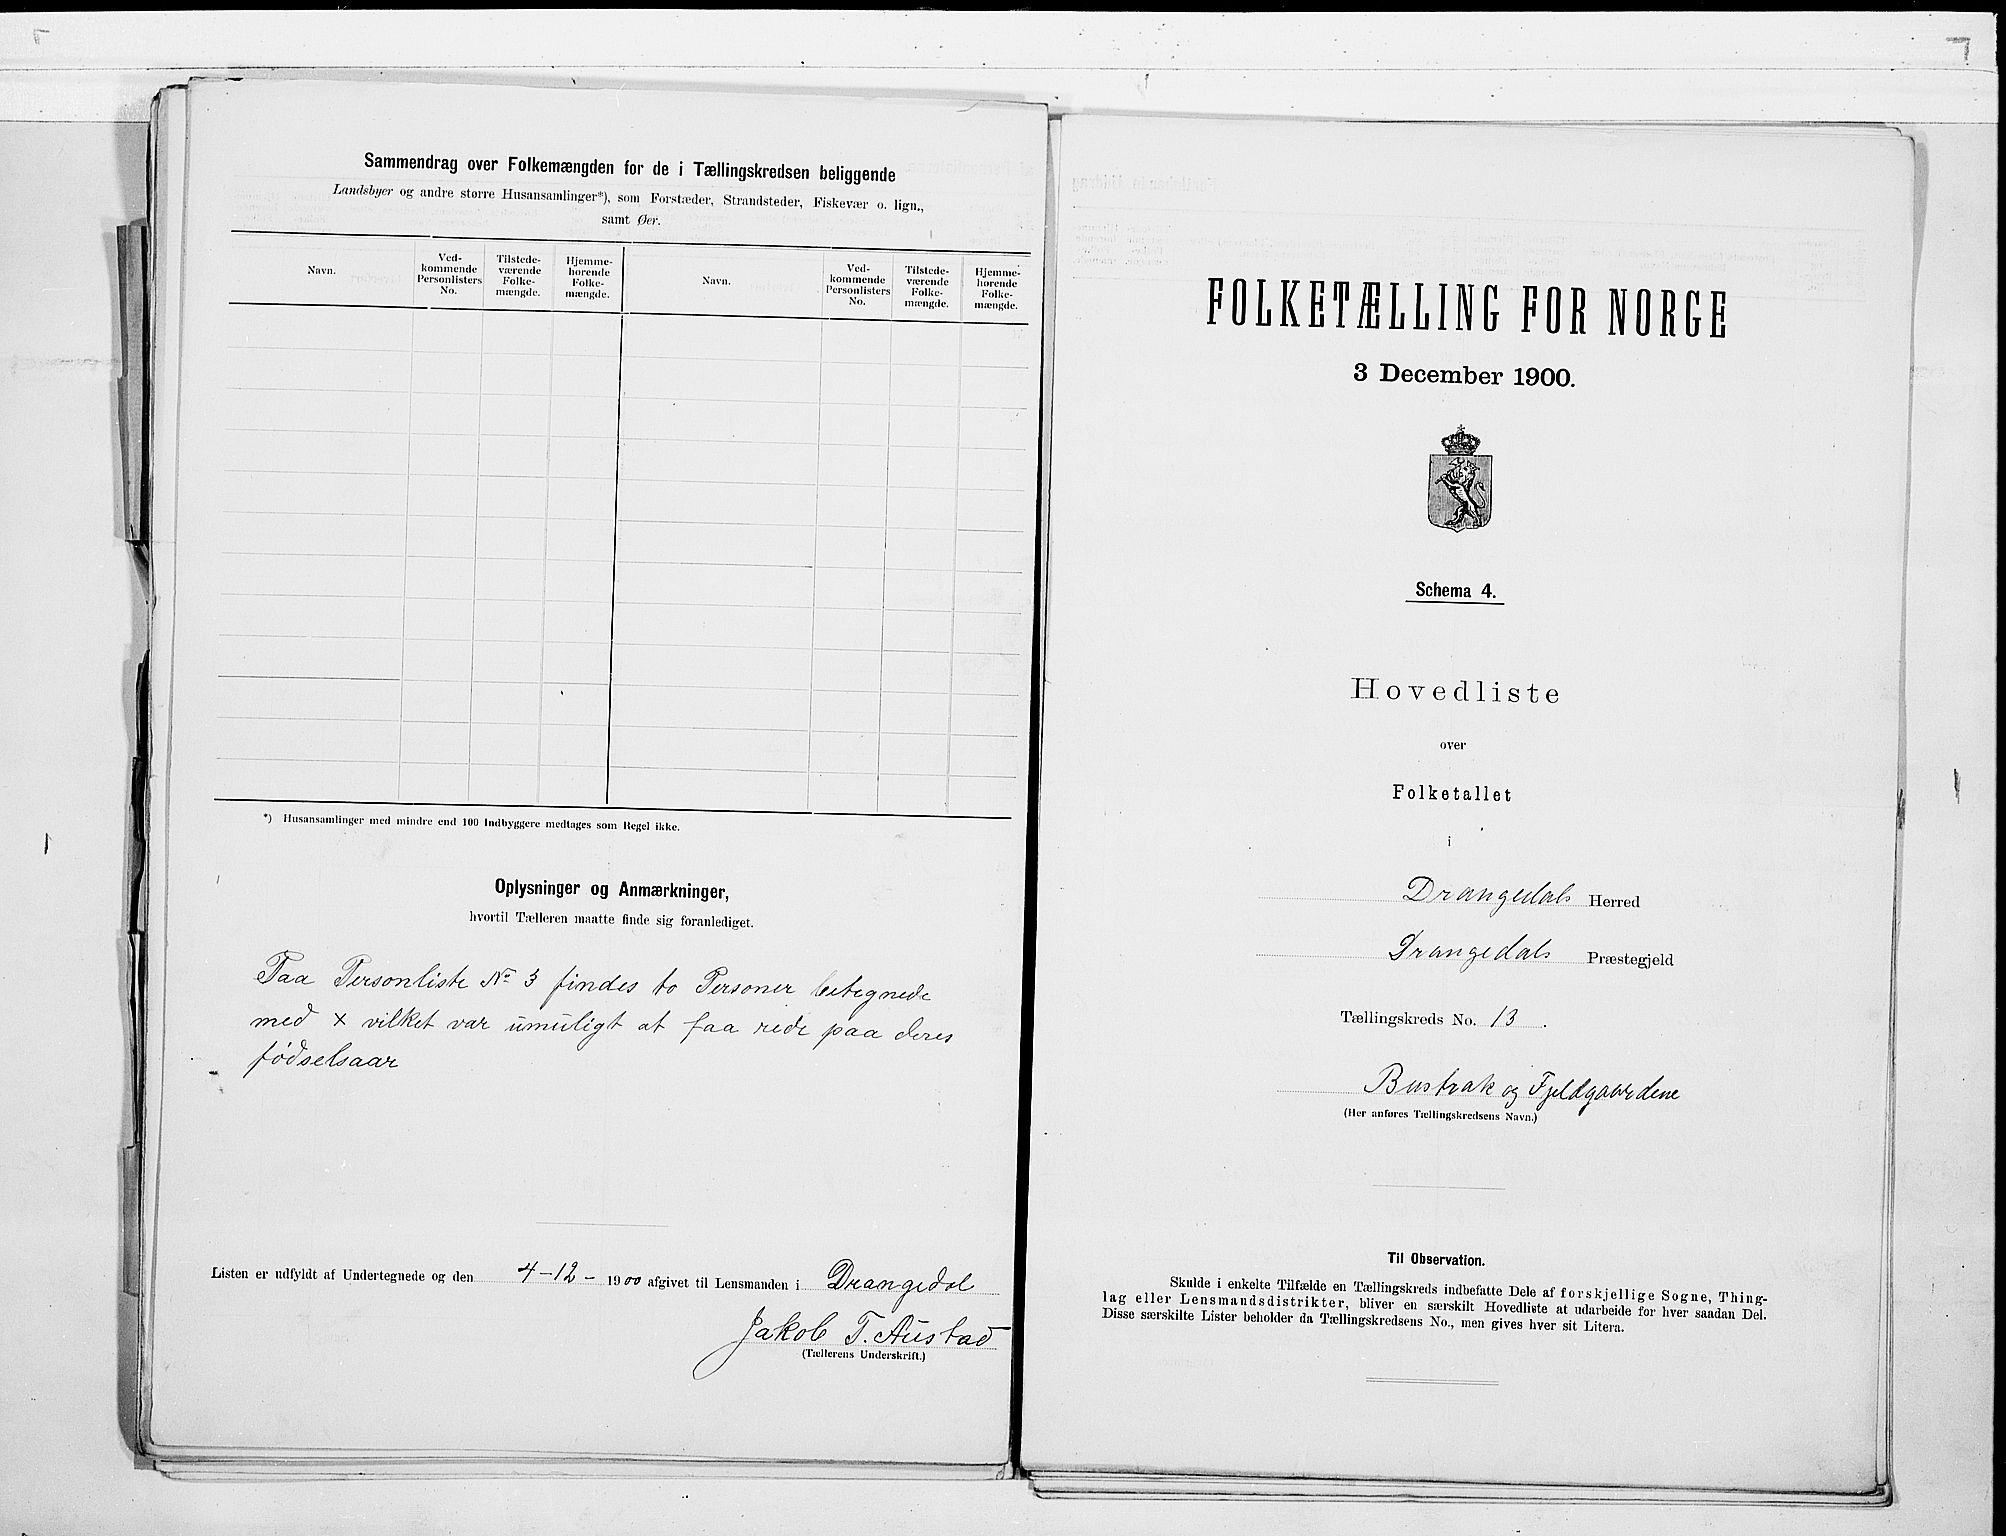 Sammendrag over Folkemængden for de i Tællingskredsen beliggende
Landsbyer og andre større Husansamlinger*), som Forstæder, Strandsteder, Fiskevær o. lign.,
samt Øer.
Navn.
Ved-
kommende
Personlisters
No.
Tilstede-
værende
Folke-
mængde.
Hjemme-
hørende
Folke-
mængde.
Navn.
Ved-
kommende
Personlisters
No.
Tilstede-
værende
Folke-
mængde.
Hjemme-
hørende
Folke-
mængde.
*) Husansamlinger med mindre end 100 Indbyggere medtages som Regel ikke.
Oplysninger og Anmærkninger,
hvortil Tælleren maatte finde sig foranlediget.
Paa Personliste No 3 findes to Personer betegnede
med x vilket var umuligt at faa rede paa deres
fødselsaar
Listen er udfyldt af Undertegnede og den 4-12- 1900 afgivet til Lensmanden i Drangedal
Jakob T. Austad
(Tællerens Underskrift.)
FOLKETÆLLING FOR NORGE
3 December 1900.
Schema 4.
Hovedliste
over
Folketallet
i
Drangedals Herred
Drangedals Præstegjeld
Tællingskreds No. 13.
Bustrak og Fjeldgaardene
(Her anføres Tællingskredsens Navn.)
Til Observation.
Skulde i enkelte Tilfælde en Tællingskreds indbefatte Dele af forskjellige Sogne, Thing-
lag eller Lensmandsdistrikter, bliver en særskilt Hovedliste at udarbeide for hver saadan Del.
Disse særskilte Lister beholder da Tællingskredsens No., men gives hver sit Litera.